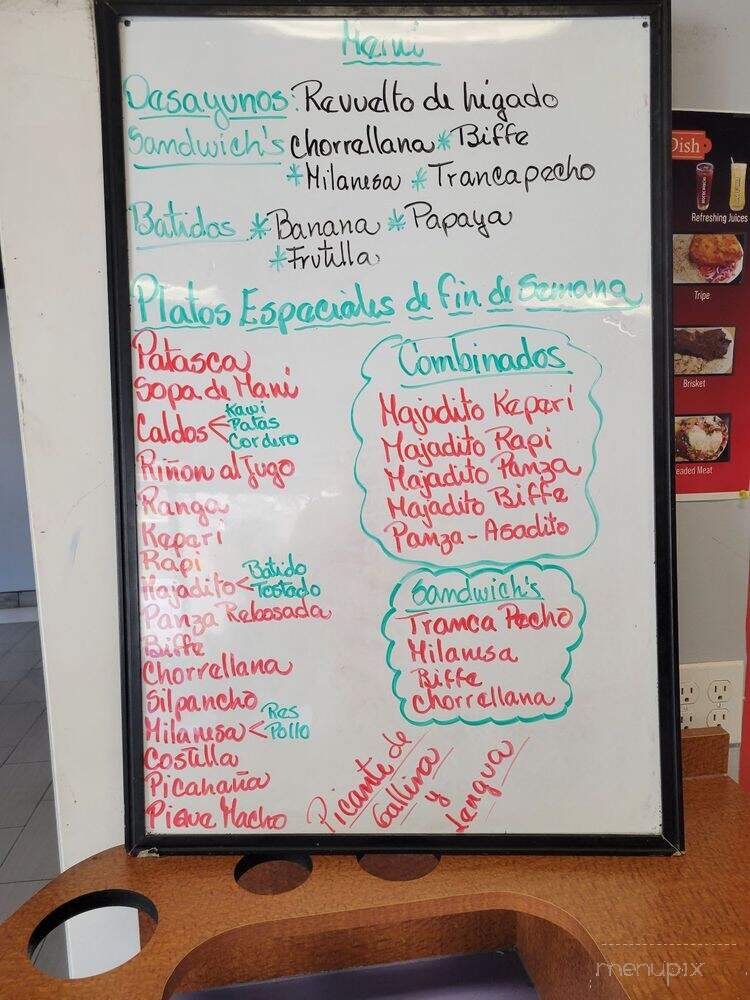 Menú
Desayunos: Revuelto de higado
Sandwich's Chorrellana * Biffe
* Milanesa * Trancapecho
Batidos * Banana * Papaya
* Frutilla
Platos Especiales de Fin de Semana
Patasca
Sopa de Mani
Caldos < Kawi
Patas
Cordero
Riñon al Jugo
Ranga
Keperi
Rapi
Majadito < Batido
Tostado
Panza Rebosada
Biffe
Chorrellana
Silpancho
Milanesa < Res
Pollo
Costilla
Picahaña
Pique Macho
Combinados
Majadito Keperi
Majadito Rapi
Majadito Panza
Majadito Biffe
Panza-Asadito
Sandwich's
Tranca Pecho
Milanesa
Biffe
Chorrellana
Picante de
Gallina
y
Lengua
Dish
Refreshing Juices
Tripe
Brisket
eaded Meat
menupix